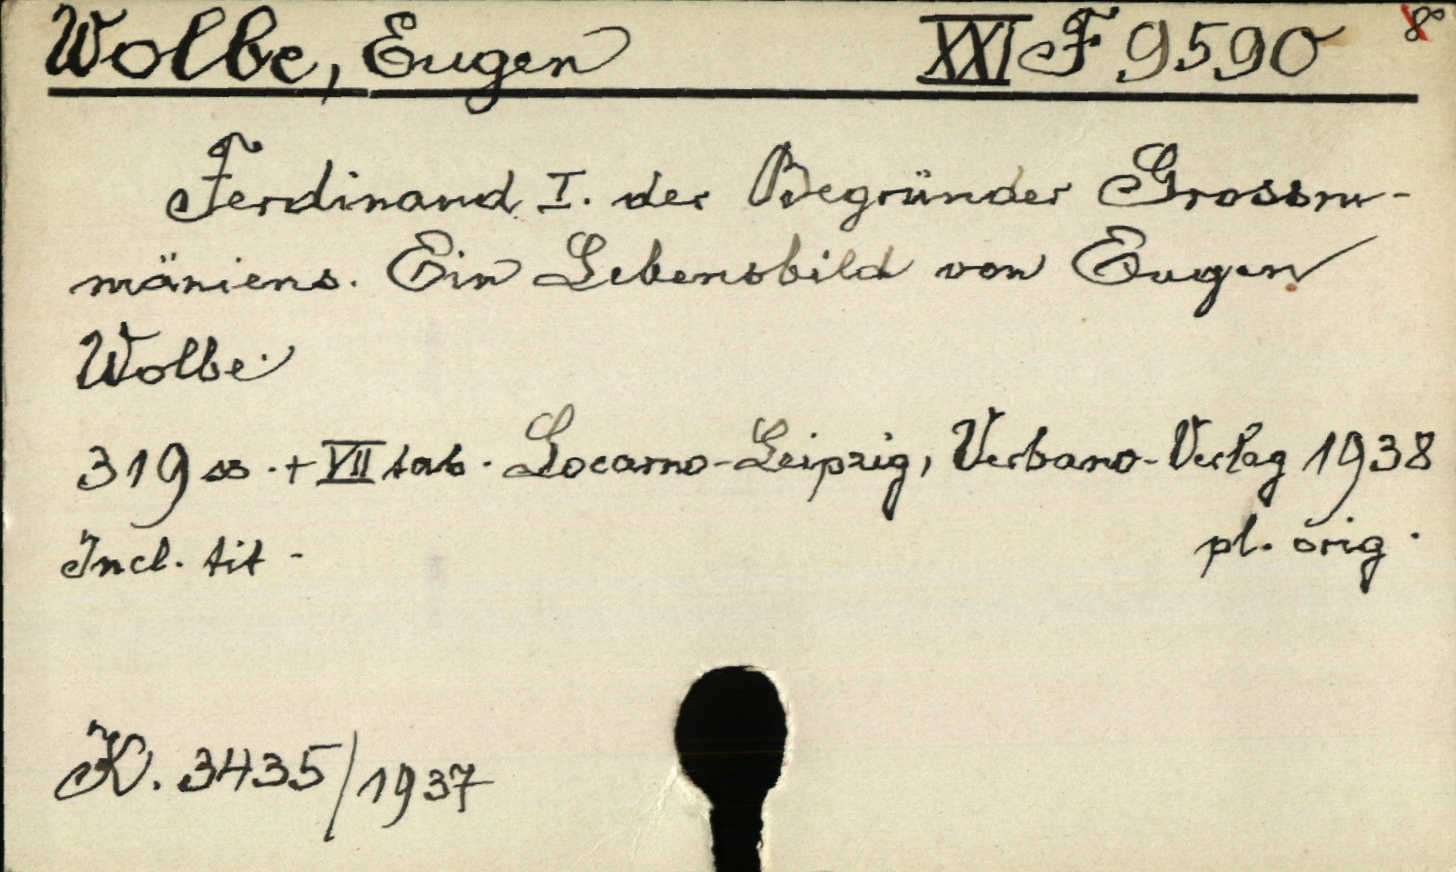 Wolbe, Eugen XXI F 9590 8°
Ferdinand I. der Begründer Grossru-
mäniens. Ein Lebensbild von Eugen
Wolbe.
319 ss. + VII tab. Locarno-Leipzig, Verbano-Verlag 1938
Incl. tit - pl. orig.
K. 3435/1937